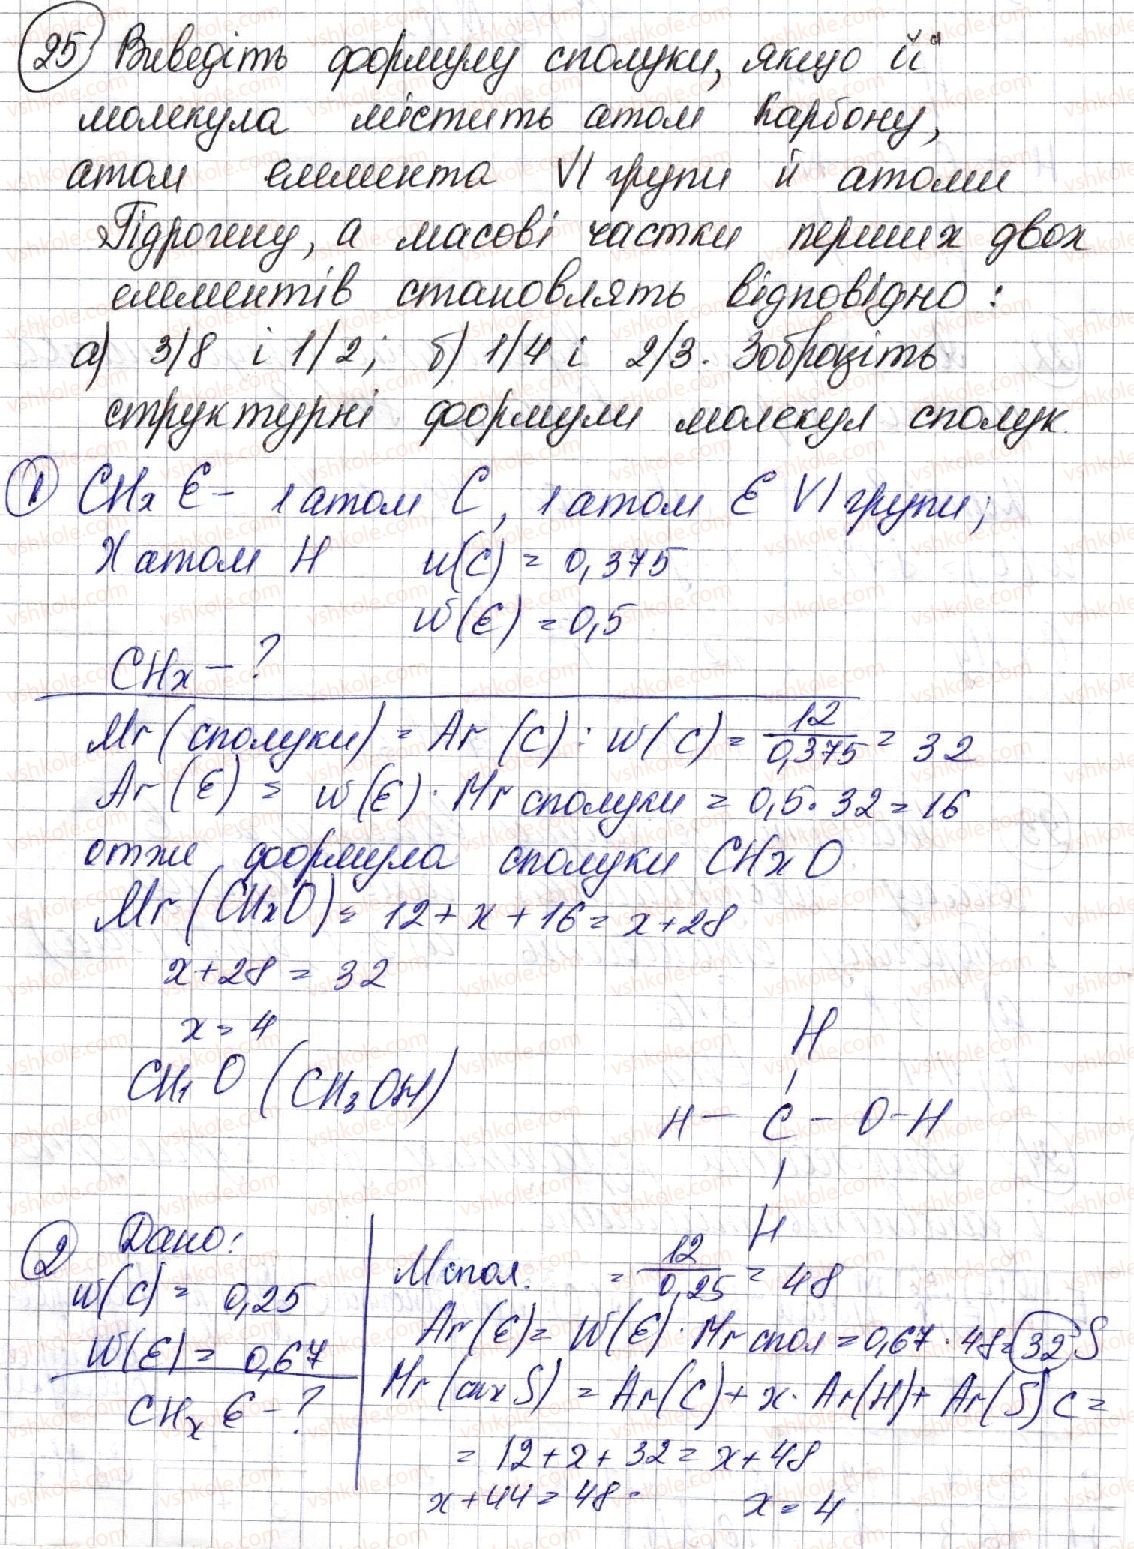 25 Виведіть формулу сполуки, якщо її
молекула містить атом Карбону,
атом елемента VI групи й атоми
Гідрогену, а масові частки перших двох
елементів становлять відповідно:
а) 3/8 і 1/2; б) 1/4 і 2/3. Зобразіть
структурні формули молекул сполук.
1 CHx E - 1 атом C, 1 атом E VI групи;
X атом H w(C) = 0,375
w(E) = 0,5
CHx - ?
Mr (сполуки) = Ar (C) : w(C) = 12/0,375 = 32
Ar (E) = w(E) · Mr сполуки = 0,5 · 32 = 16
отже формула сполуки CHxO
Mr (CHxO) = 12 + x + 16 = x + 28
x + 28 = 32
x = 4
CH₄O (CH₃OH)
H
H - C - O - H
H
2 Дано:
w(C) = 0,25
w(E) = 0,67
CHx E - ?
M спол. = 12/0,25 = 48
Ar (E) = w(E) · Mr спол = 0,67 · 48 = 32 S
Mr (CHxS) = Ar(C) + x · Ar(H) + Ar(S) =
= 12 + x + 32 = x + 48
x + 44 = 48 x = 4